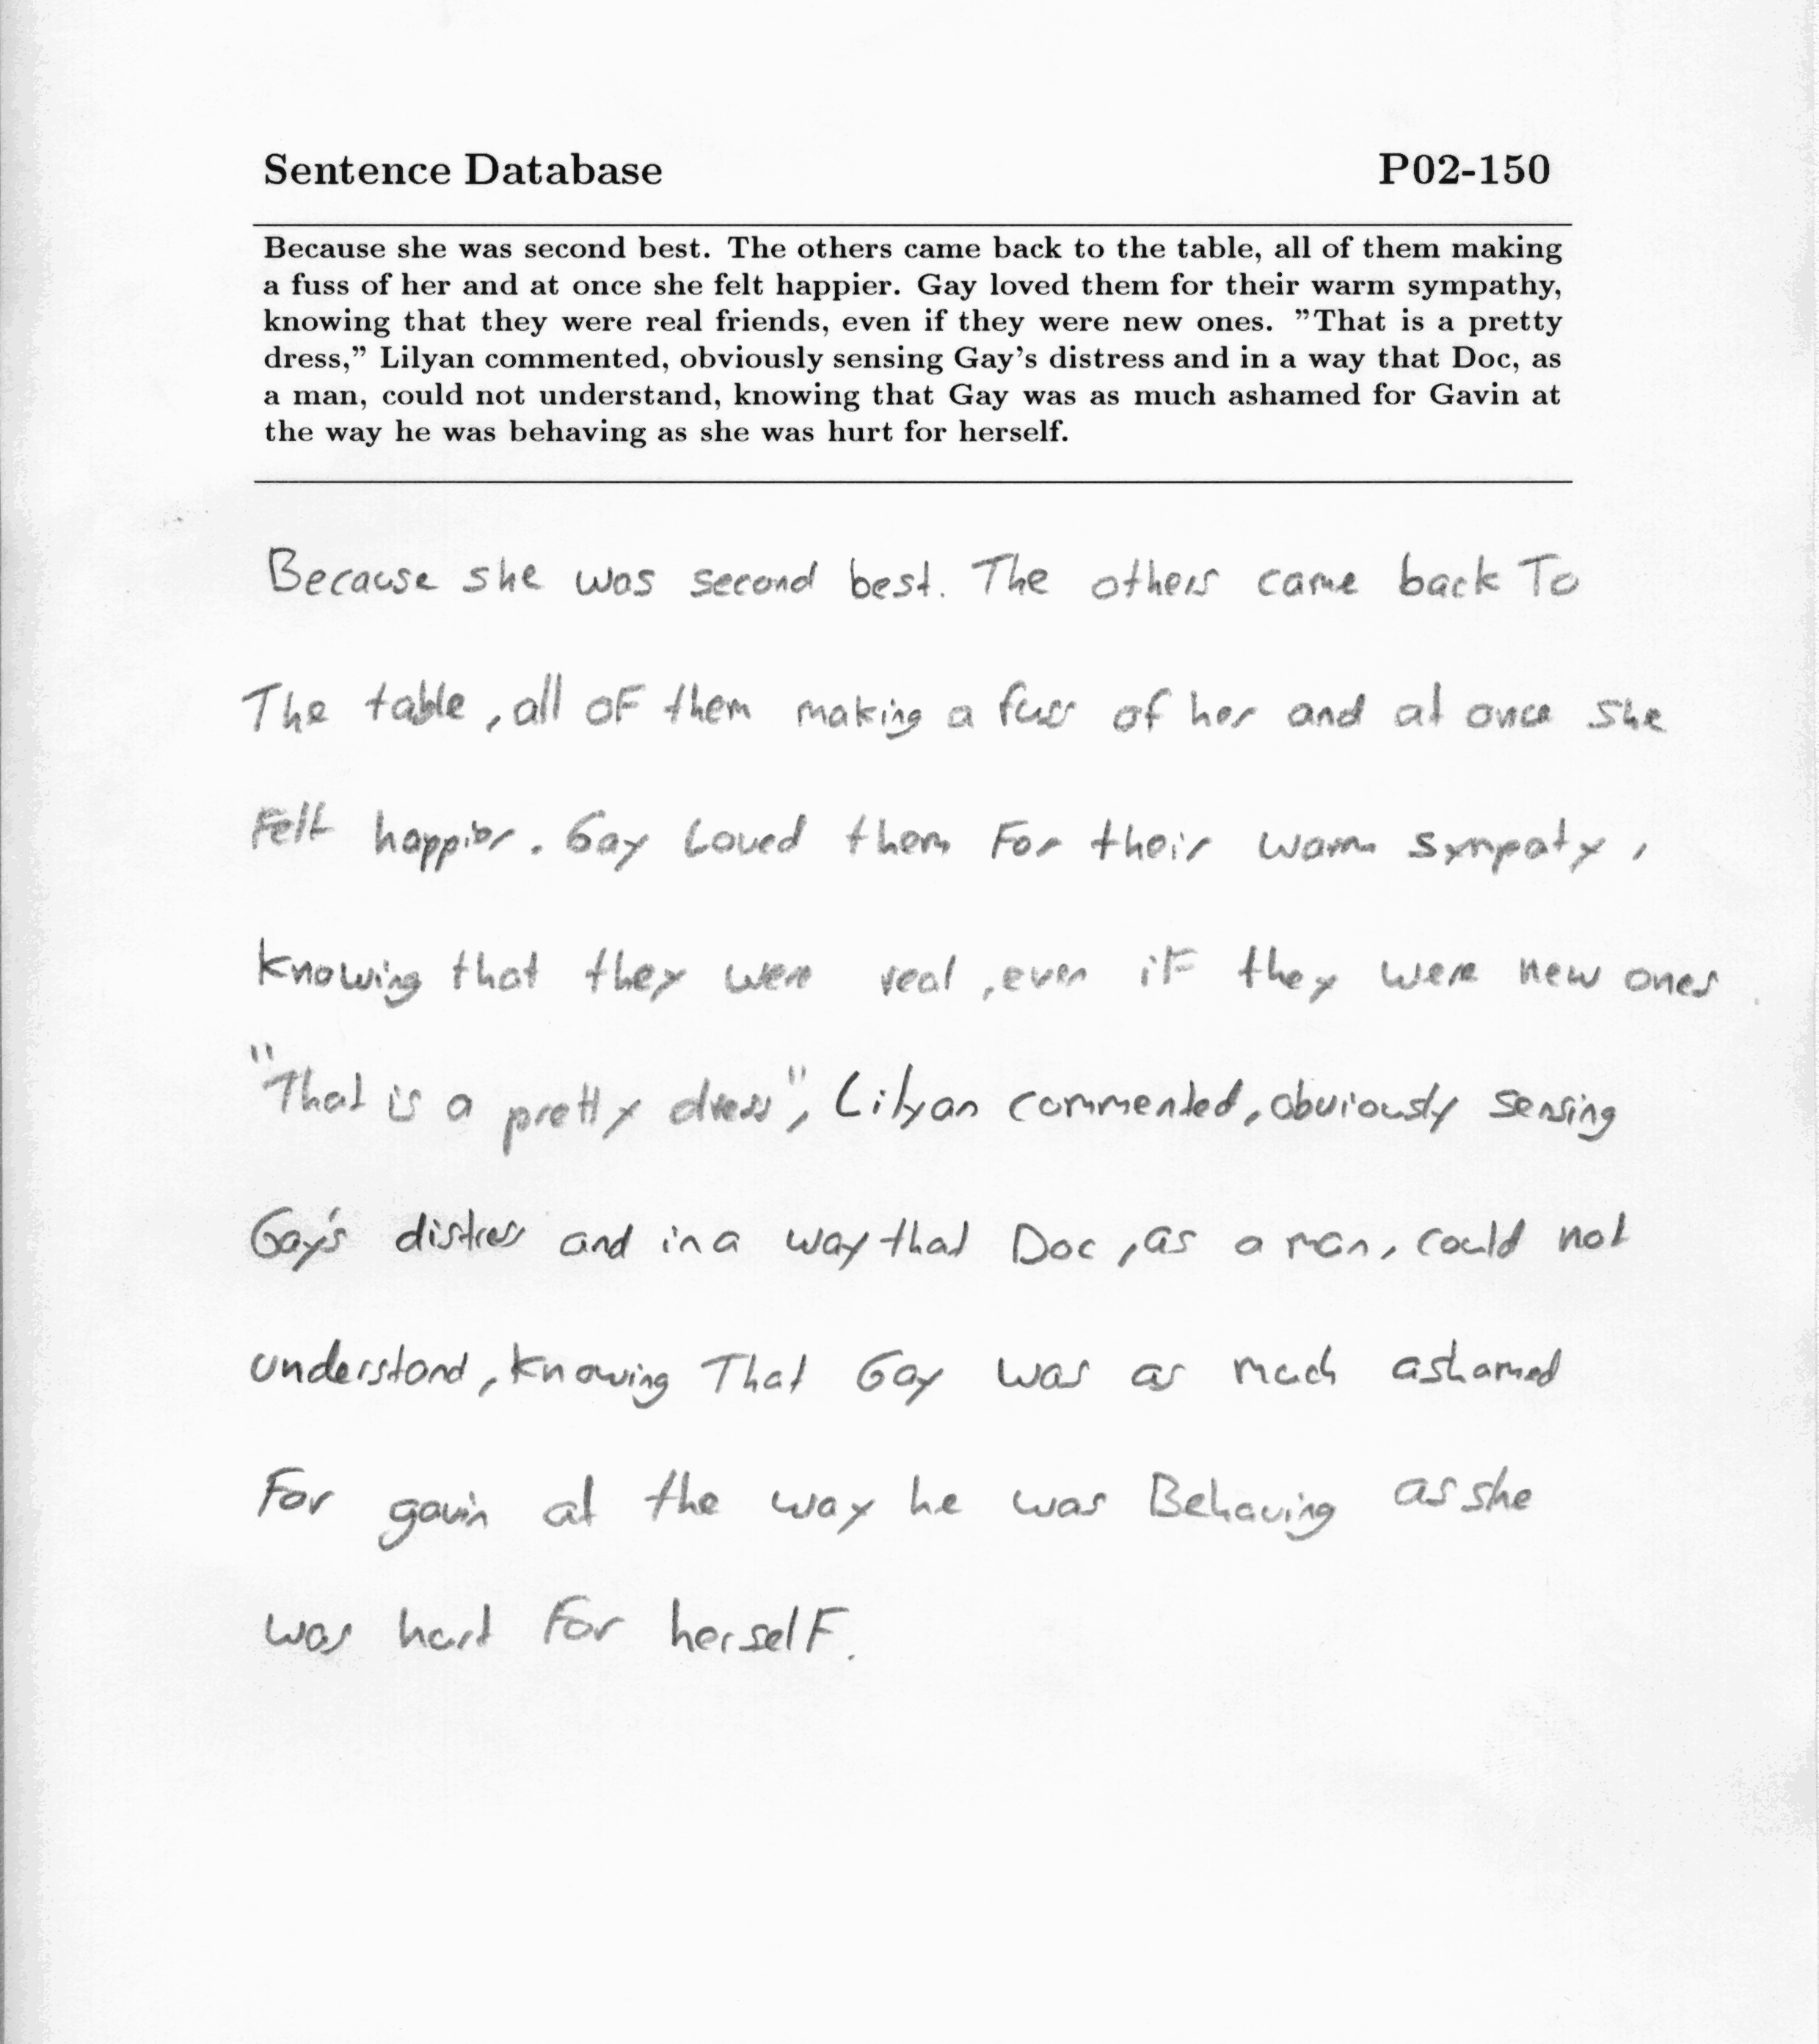 Sentence Database P02-150
Because she was second best. The others came back to the table, all of them making
a fuss of her and at once she felt happier. Gay loved them for their warm sympathy,
knowing that they were real friends, even if they were new ones. "That is a pretty
dress," Lilyan commented, obviously sensing Gay's distress and in a way that Doc, as
a man, could not understand, knowing that Gay was as much ashamed for Gavin at
the way he was behaving as she was hurt for herself.
Because she was second best. The others came back To
The table, all oF them making a fuss of her and at once she
Felt happier. Gay Loved them For their warm sympaty,
knowing that they were real, even iF they were new ones.
"That is a pretty dress", Lilyan commented, obviously sensing
Gay's distress and in a way that Doc, as a man, could not
understand, knowing That Gay was as much ashamed
For gavin at the way he was Behaving as she
was hurt For herselF.